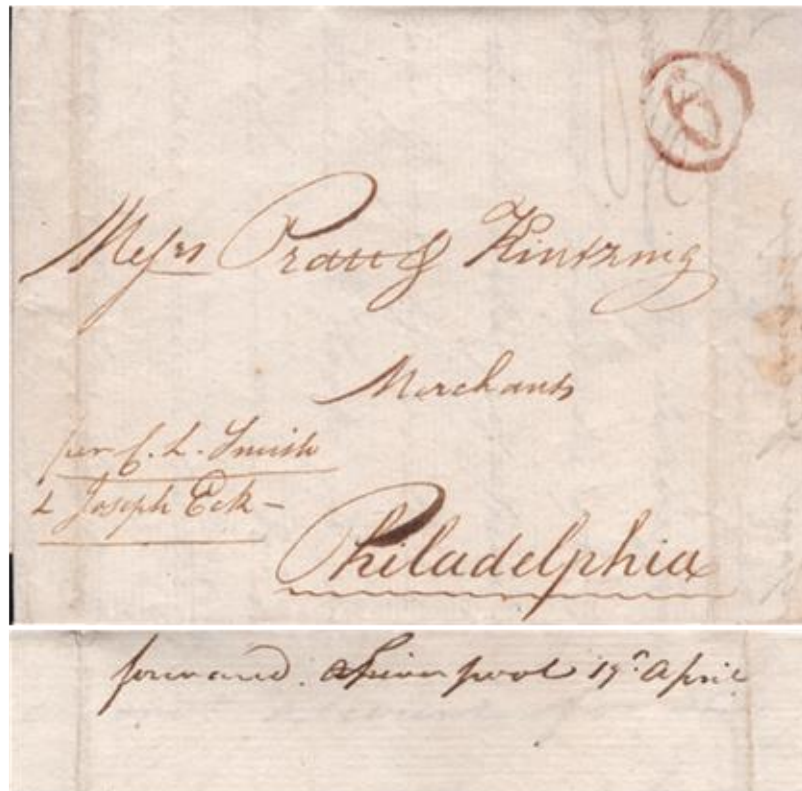 Messrs Pratt & Kintzing
Merchants
per C. L. Smith
& Joseph Eck –
Philadelphia
forward. Liverpool 19. April